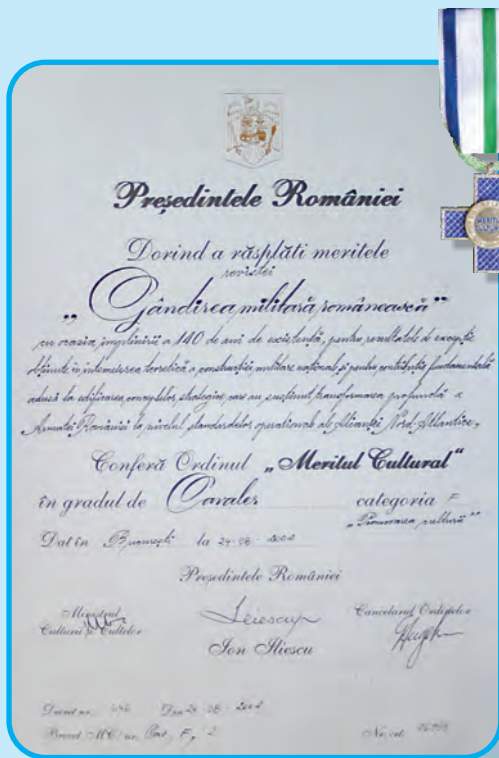 Președintele României
Dorind a răsplăti meritele
revistei
„Gândirea militară românească”
cu ocazia împlinirii a 140 de ani de existență, pentru rezultatele de excepție
obținute în întemeierea teoretică a construcției militare naționale și pentru contribuția fundamentală
adusă la edificarea conceptelor strategice care au susținut transformarea profundă a
Armatei României la nivelul standardelor operaționale ale Alianței Nord-Atlantice,
Conferă Ordinul „Meritul Cultural“
în gradul de Cavaler categoria F
„Promovarea culturii”
Dat în București la 24-08-
Președintele României
Ministrul Cancelarul Ordinelor
Culturii și Cultelor
Ion Iliescu
Decret nr. Din 24-08-
Brevet F, 2 Nr. cd.
MERITUL
CULTURAL